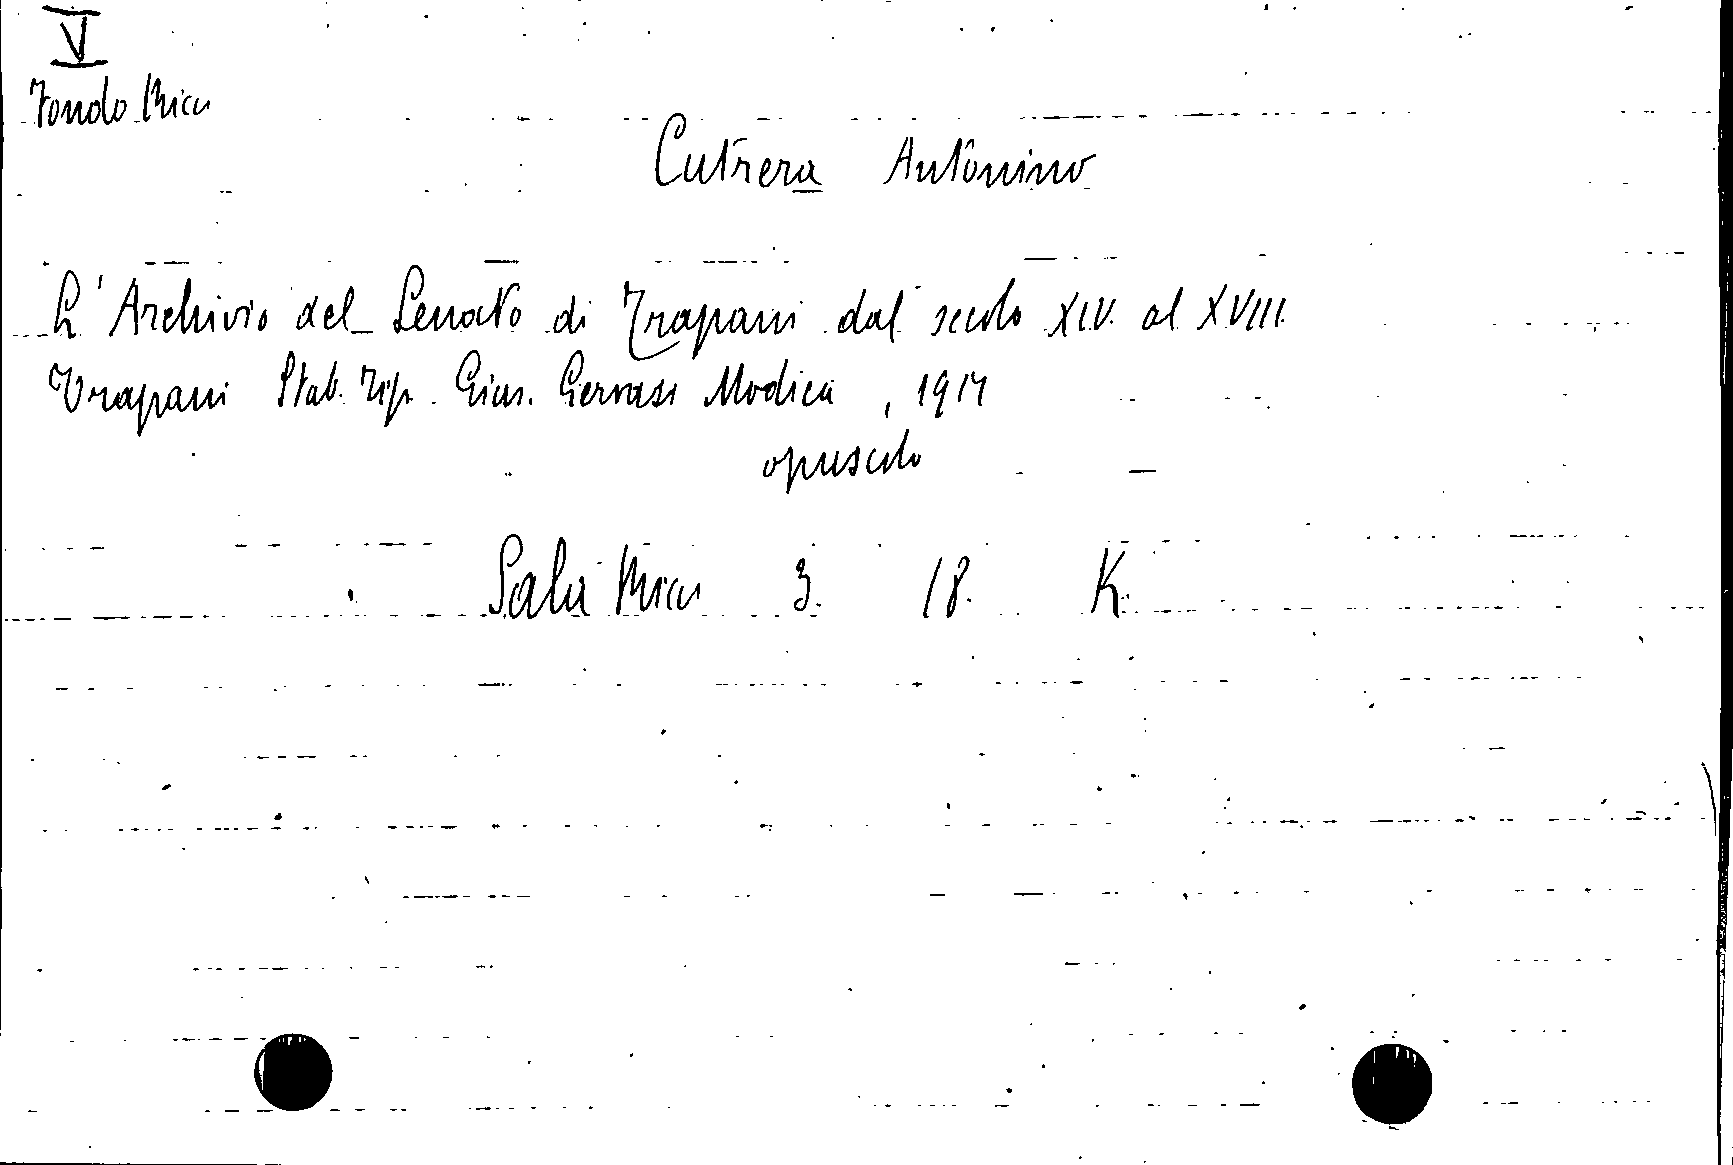 V
Fondo Ricu
Cutrera Antonino
L'Archivio del Senato di Trapani dal secolo XIV. al XVIII.
Trapani Stab. Tip. Gius. Gervasi Modica, 1917
opuscolo
Sala 3. 18. K.